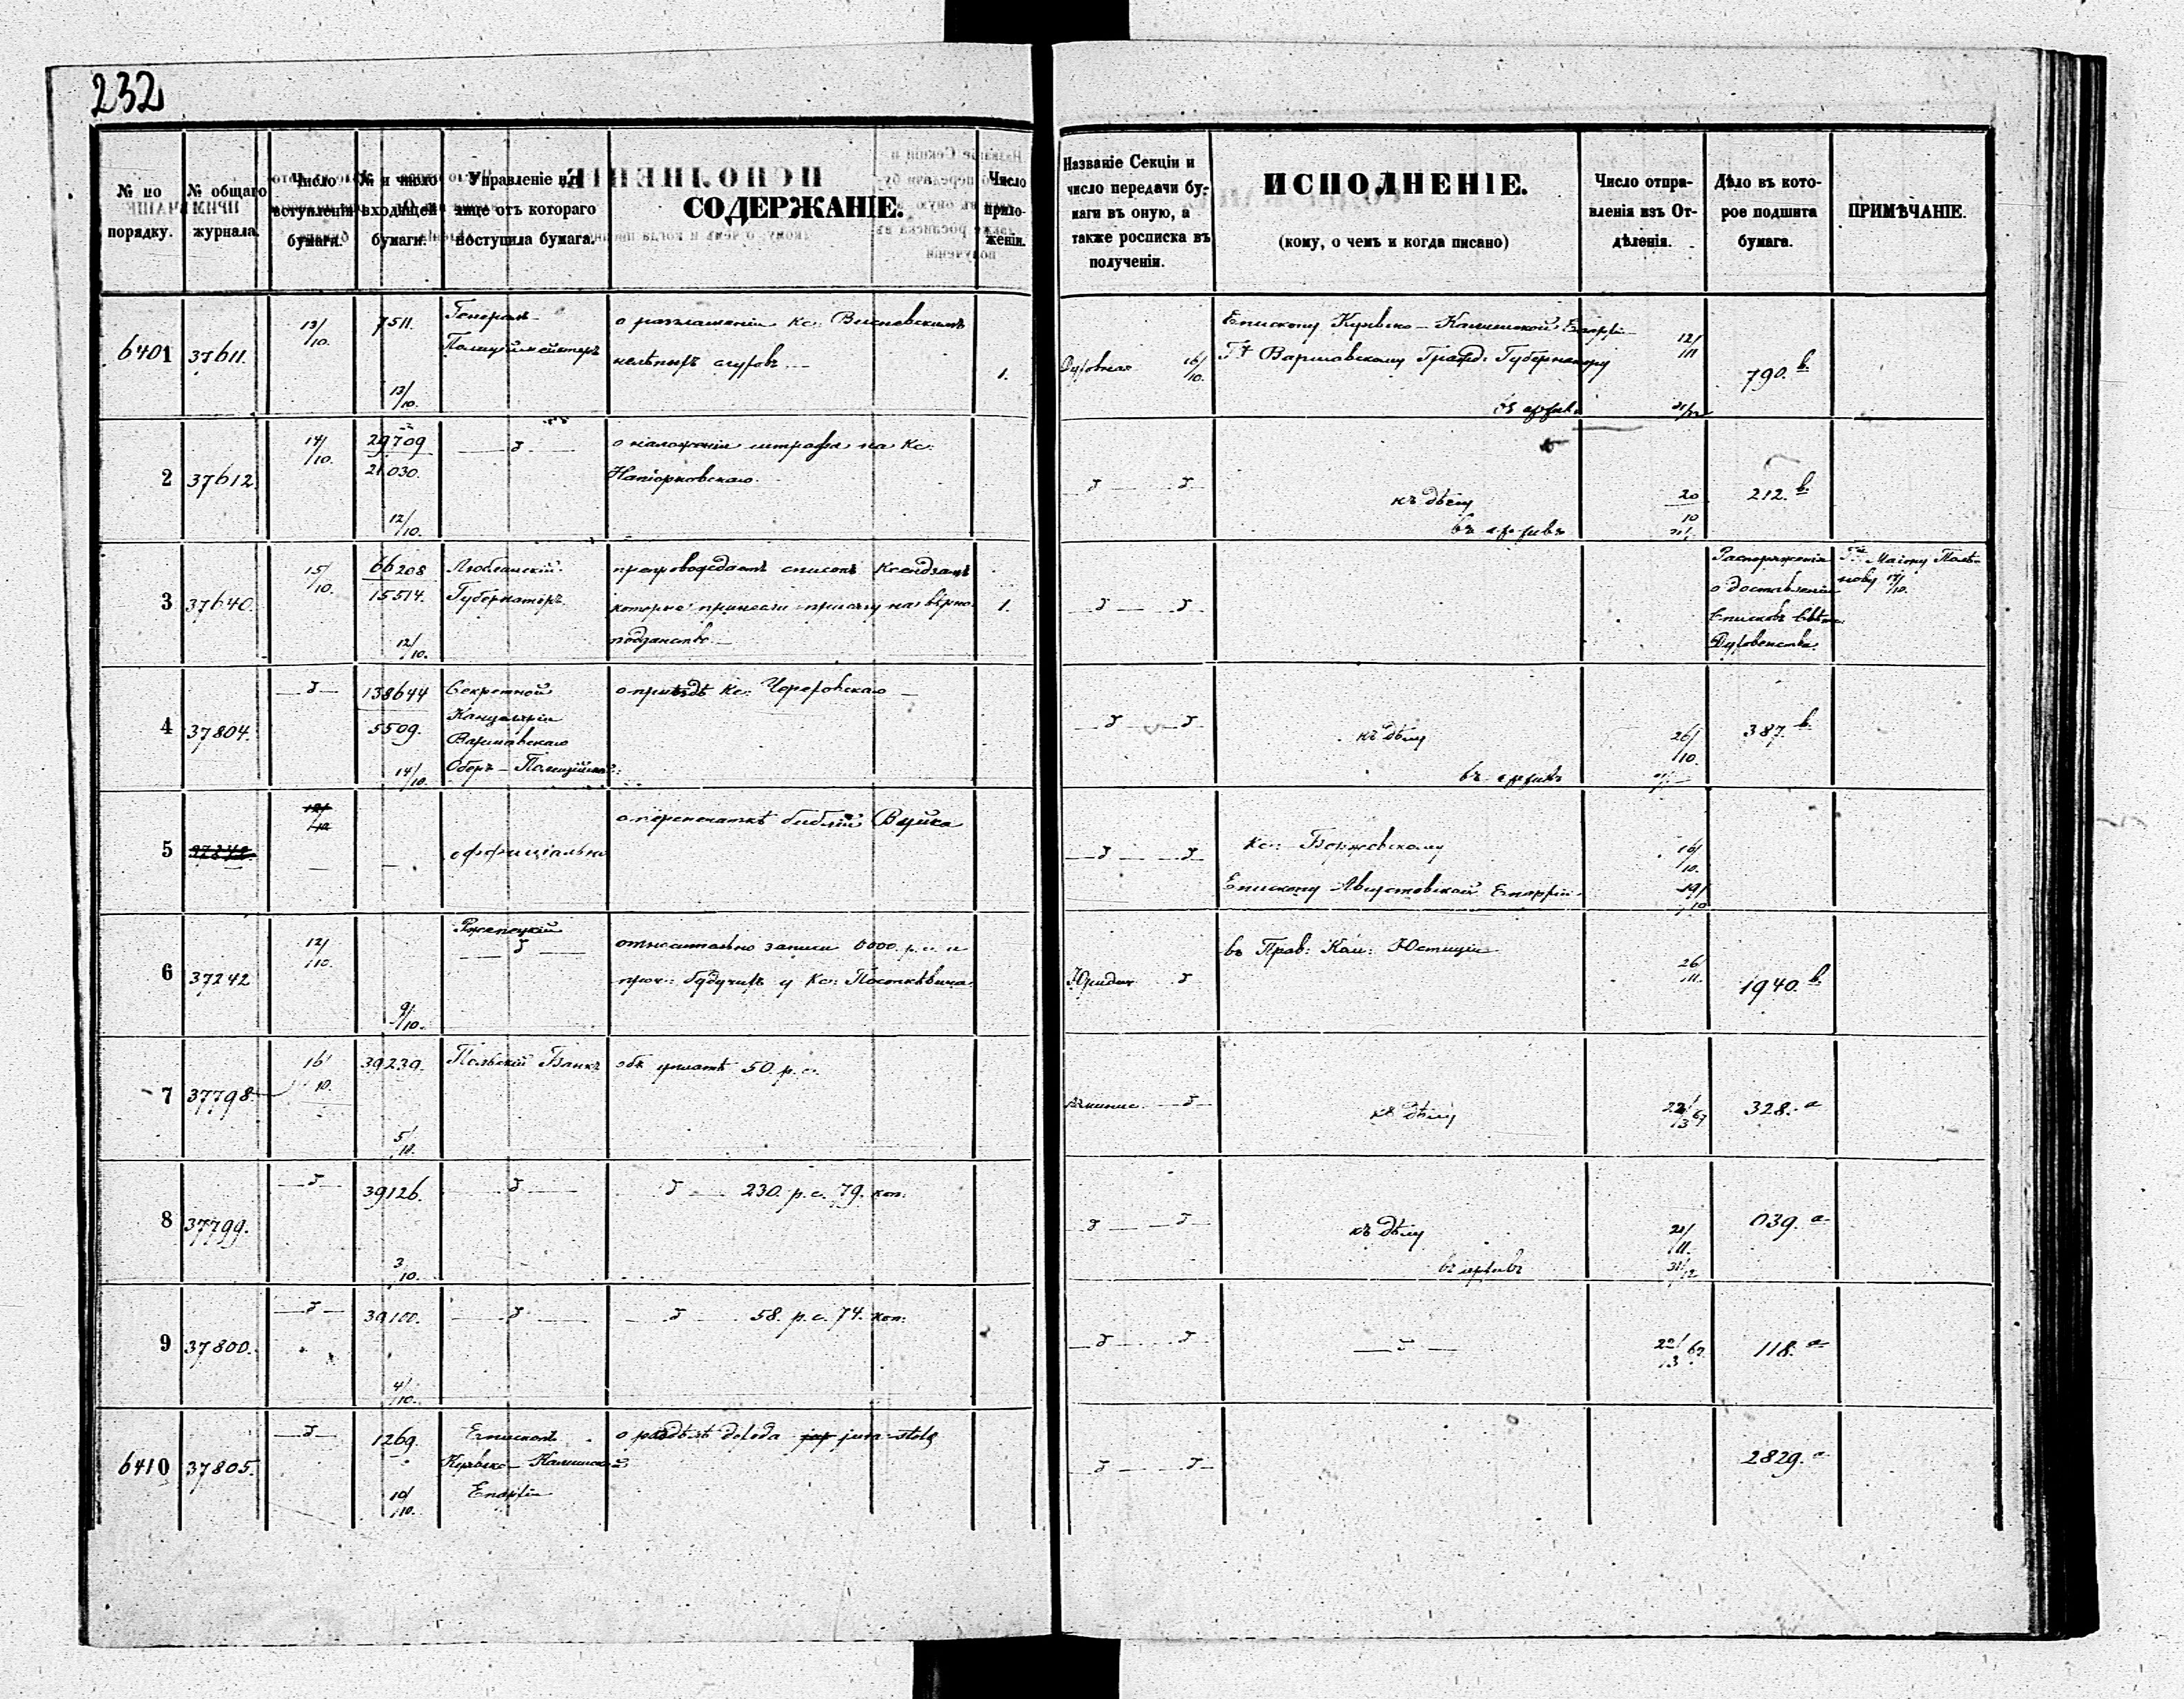 232
№ по порядку.
№ общаго журнала.
Число вступленія бумаги.
№ и число входящей бумаги.
Управленіе или лице отъ котораго поступила бумага.
СОДЕРЖАНІЕ.
Число приложеній.
Названіе Секціи и число передачи бумаги въ оную, а также росписка въ полученіи.
ИСПОЛНЕНІЕ.
(кому, о чемъ и когда писано)
Число отправленія изъ Отдѣленія.
Дѣло въ которое подшита бумага.
ПРИМѢЧАНІЕ.
6401 37611. 13/10. 7511. 13/10. Генералъ-Полиціймейстеръ
о разглашеніи Кс:
нелѣпыхъ слуховъ 1.
Духовная 16/10. Епископу Куявско-Калишской Епархіи 12/11
Гну Варшавскому Гражд: Губернатору
790. в.
въ архивъ 31/12
2 37612. 14/10. 29709 21.030. 12/10.
о наложеніи штрафа на Кс:
Напіорковскаго.
къ дѣлу 20/10 212. в.
въ архивъ
3 37640. 15/10. 66208 15514. 12/10. Люблинскій Губернаторъ
препровождаетъ списокъ Ксендзамъ
которые принесли присягу на вѣрно
подданство 1.
Распоряженія
о доставленіи
Списковъ
Духовенства.
4 37804. 138644 5509. 14/10. Секретной
Канцеляріи
Варшавскаго
Оберъ-Полиційм:
о пріѣздѣ Кс: Череховскаго
къ дѣлу 26/10. 387. в.
въ архивъ
5 37242. 12/10
оффиціально
о перепечаткѣ библіи Вуйка
Кс: Боржевскому 16/10.
Епископу Августовской Епархіи 19/10
6 37242 12/10. 9/10.
Ржепецкій
относительно записи 6000. р. с. и
проч: у Кс:
Юридич
въ Прав: Ком: Юстиціи 26/11. 1940. в.
7 37798. 16/10. 39239. 5/10. Польскій Банкъ объ уплатѣ 50. р. с.
къ дѣлу 22/3 67 328. а
8 37799. 39126. 3/10. 230. р. с. 79. коп.
къ дѣлу 21/11. 939. а
въ архивъ 31/12
9 37800. 39100. 4/10. 58. р. с. 74. коп.
22/3 67. 118. а
6410 37805. 1269. 10/10. Епископъ
Куявско-Калишской
Епархіи
о раздѣлѣ дохода jura stolę
2829. а